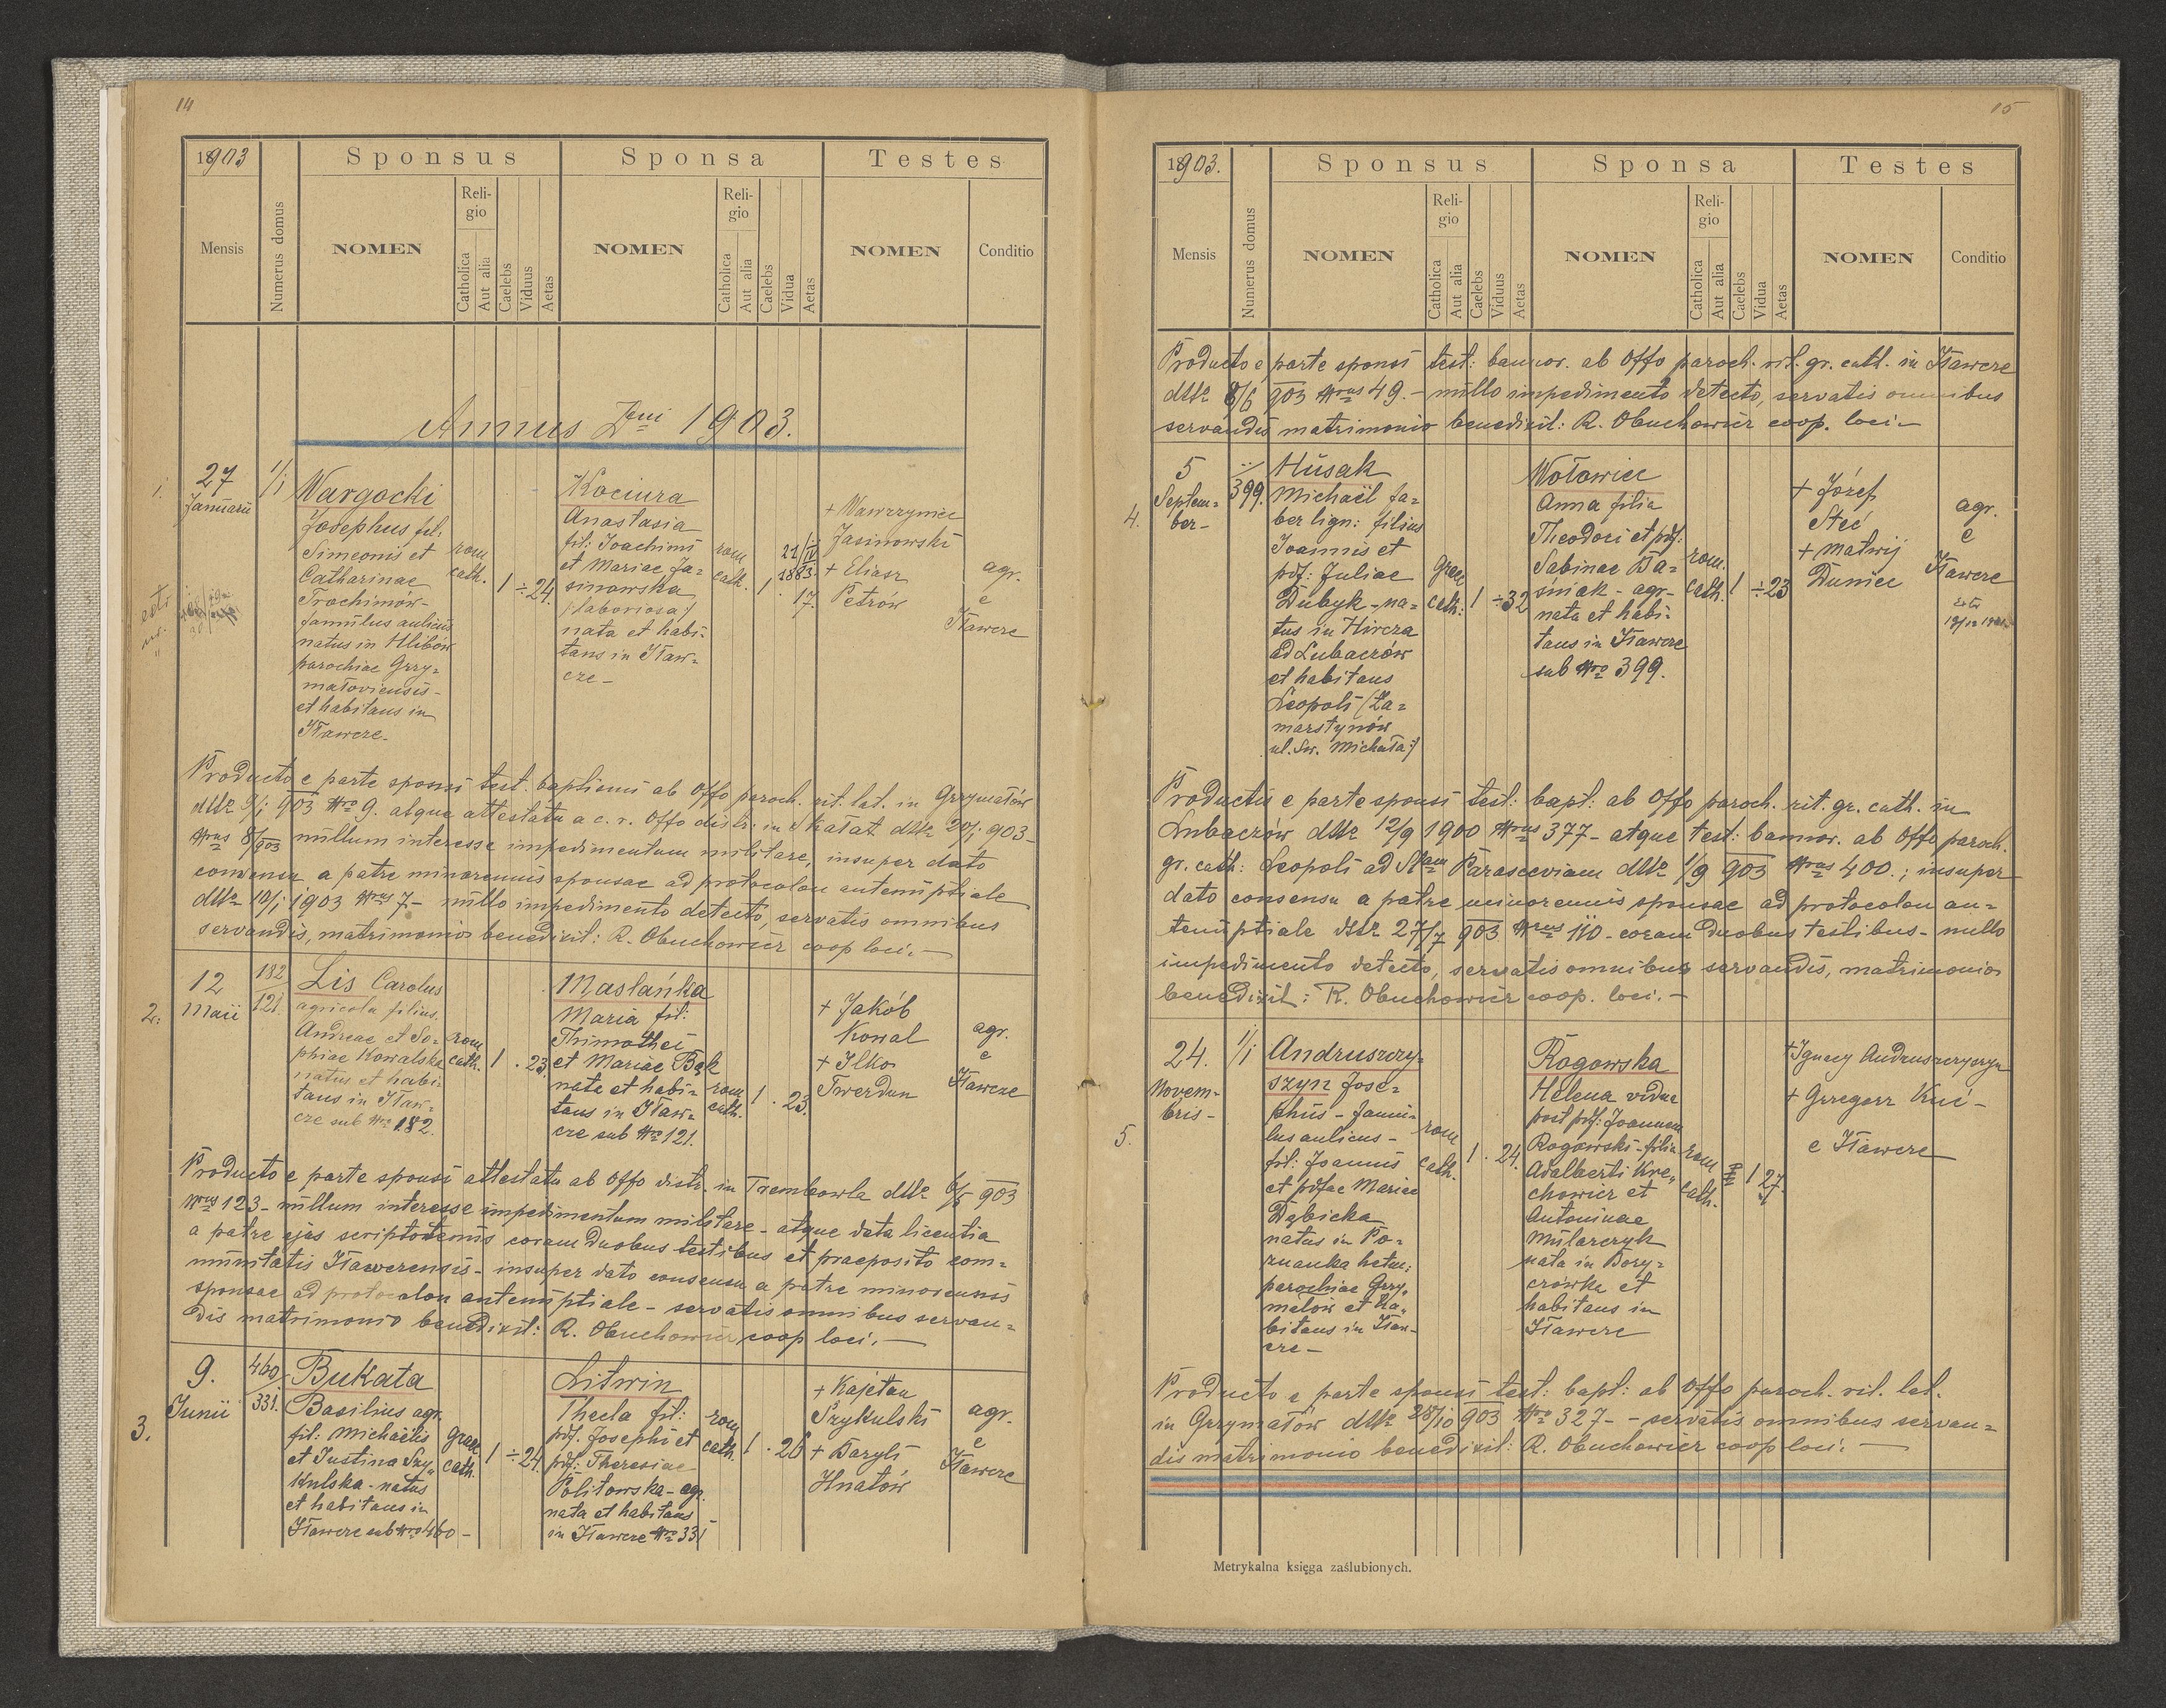 14
1903
Sponsus
Sponsa
Testes
Mensis
Numerus domus
NOMEN
Religio
Catholica
Aut alia
Caelebs
Viduus
Aetas
NOMEN
Religio
Catholica
Aut alia
Caelebs
Vidua
Aetas
NOMEN
Conditio
Annus Dni 1903.
1.
27
Januarii
1/1
Wargocki
Josephus fil:
Simeonis et
Catharinae
Trochimów-
famulus aulicus
natus in Hlibów
parochiae Grzy-
małoviensis-
et habitans in
Iławcze-
rom
cath.
1 ÷ 24.
Kociura
Anastasia
fil: Joachimi
et Mariae Ja=
sinowska
/:laboriosa:/
nata et habi-
tans in Iław-
cze-
rom
cath.
1
21/IV
1883.
17.
+ Wawrzyniec
Jasinowski
+ Eliasz
Petrów
agr.
e
Iławcze
Producto e parte sponsi test. baptismi ab Offo paroch. rit. lat. in Grzymałów
dtto 9/1 903 Nro 9. atque attestatu a c. r. Offo distr. in Skałat dtto 20/1 903-
Nrus 8/903 nullum interesse impedimentum militare, insuper dato
consensu a patre minorennis sponsae ad protocolon antenuptiale
dtto 10/1 1903 Nrus 7- nullo impedimento detecto, servatis omnibus
servandis, matrimonio benedixit: R. Obuchowicz coop loci.-
2.
12
Maii
182
121.
Lis Carolus
agricola filius
Andreae et So-
phiae Kowalska
natus et habi-
tans in Iław-
cze sub Nro 182.
rom
cath.
1 . 23.
Maslańka
Maria fil:
Thimothei
et Mariae Bąk
nata et habi-
tans in Iław-
cze sub Nro 121.
rom
cath.
1 . 23.
+ Jakób
Kowal
+ Ilko
Twerdun
agr.
e
Iławcze
Producto e parte sponsi attestatu ab Offo distr. in Trembowla dtto 6/5 903
Nrus 123- nullum interesse impedimentum militare- atque data licentia
a patre ejus scriptotenus coram duobus testibus et praeposito com=
munitatis Iławczensis- insuper dato consensu a patre minorennis
sponsae ad protocolon antenuptiale- servatis omnibus servan=
dis matrimonio benedixit: R. Obuchowicz coop loci.-
3.
9.
Junii
460
331.
Bukata
Basilius agr.
fil: Michaëlis
et Justina Szy-
kulska- natus
et habitans in
Iławcze sub Nro 460-
graec
cath.
1 ÷ 24.
Litwin
Thecla fil:
pdf. Josephi et
pdf: Theresiae
Politowska- agr.
nata et habitans
in Iławcze Nro 331
rom
cath.
1 . 26
+ Kajetan
Szykulski
+ Baryli
Hnatów
agr.
e
Iławcze
15
1903.
Sponsus
Sponsa
Testes
Mensis
Numerus domus
NOMEN
Religio
Catholica
Aut alia
Caelebs
Viduus
Aetas
NOMEN
Religio
Catholica
Aut alia
Caelebs
Vidua
Aetas
NOMEN
Conditio
Producto e parte sponsi test: bannor. ab Offo paroch. rit. gr. cath. in Iławcze
dtto 8/6 903 Nrus 49.- nullo impedimento detecto, servatis omnibus
servandis matrimonio benedixit: R. Obuchowicz coop. loci.-
4.
5
Septem=
ber-
399.
Húsak
Michaël fa=
ber lign: filius
Joannis et
pdf: Juliae
Dubyk- na=
tus in Hircza
ad Lubaczów
et habitans
Leopoli /:Za=
marstynów
ul. Św. Michała:/
graec
cath:
1 ÷ 32
Wołowiec
Anna filia
Theodori et pdf:
Sabinae Ba=
siniak- agr-
nata et habi-
tans in Iławcze
sub Nro 399.
rom.
cath.
1 ÷ 23
+ Józef
Steć
+ Matwij
Duniec
agr.
e
Iławcze
Productis e parte sponsi test: bapt: ab Offo paroch. rit. gr. cath. in
Lubaczów dtto 12/9 1900 Nrus 377- atque test: bannor. ab Offo paroch.
gr. cath: Leopoli ad Stam Parasceviam dtto 1/9 903 Nrus 400.; insuper
dato consensu a patre minorennis sponsae ad protocolon an=
tenuptiale dtto 27/7 903 Nrus 110- coram duobus testibus- nullo
impedimento detecto, servatis omnibus servandis, matrimonio
benedixit: R. Obuchowicz coop. loci.-
5.
24.
Novem-
bris-
1/1
Andruszczy=
szyn Jose=
phus- famu=
lus aulicus-
fil: Joannis
et pdfae Mariae
Dąbicka
natus in Po=
znanka hetm:
parochiae Grzy-
małów et ha-
bitans in Iław-
cze-
rom
cath.
1 . 24.
Rogowska
Helena vidua
post pdf: Joannem
Rogowski- filia
Adalberti Kre-
chowicz et
Antoninae
Mularczyk
nata in Bory=
czówka et
habitans in
Iławcze
rom
cath.
1 27.
+ Ignacy Andruszczyszyn
+ Grzegorz Kuć-
e Iławcze
Producto e parte sponsi test: bapt: ab Offo paroch. rit. lat.
in Grzymałów dtto 28/10 903 Nro 327-- servatis omnibus servan=
dis matrimonio benedixit: R. Obuchowicz coop loci.-
Metrykalna księga zaślubionych.